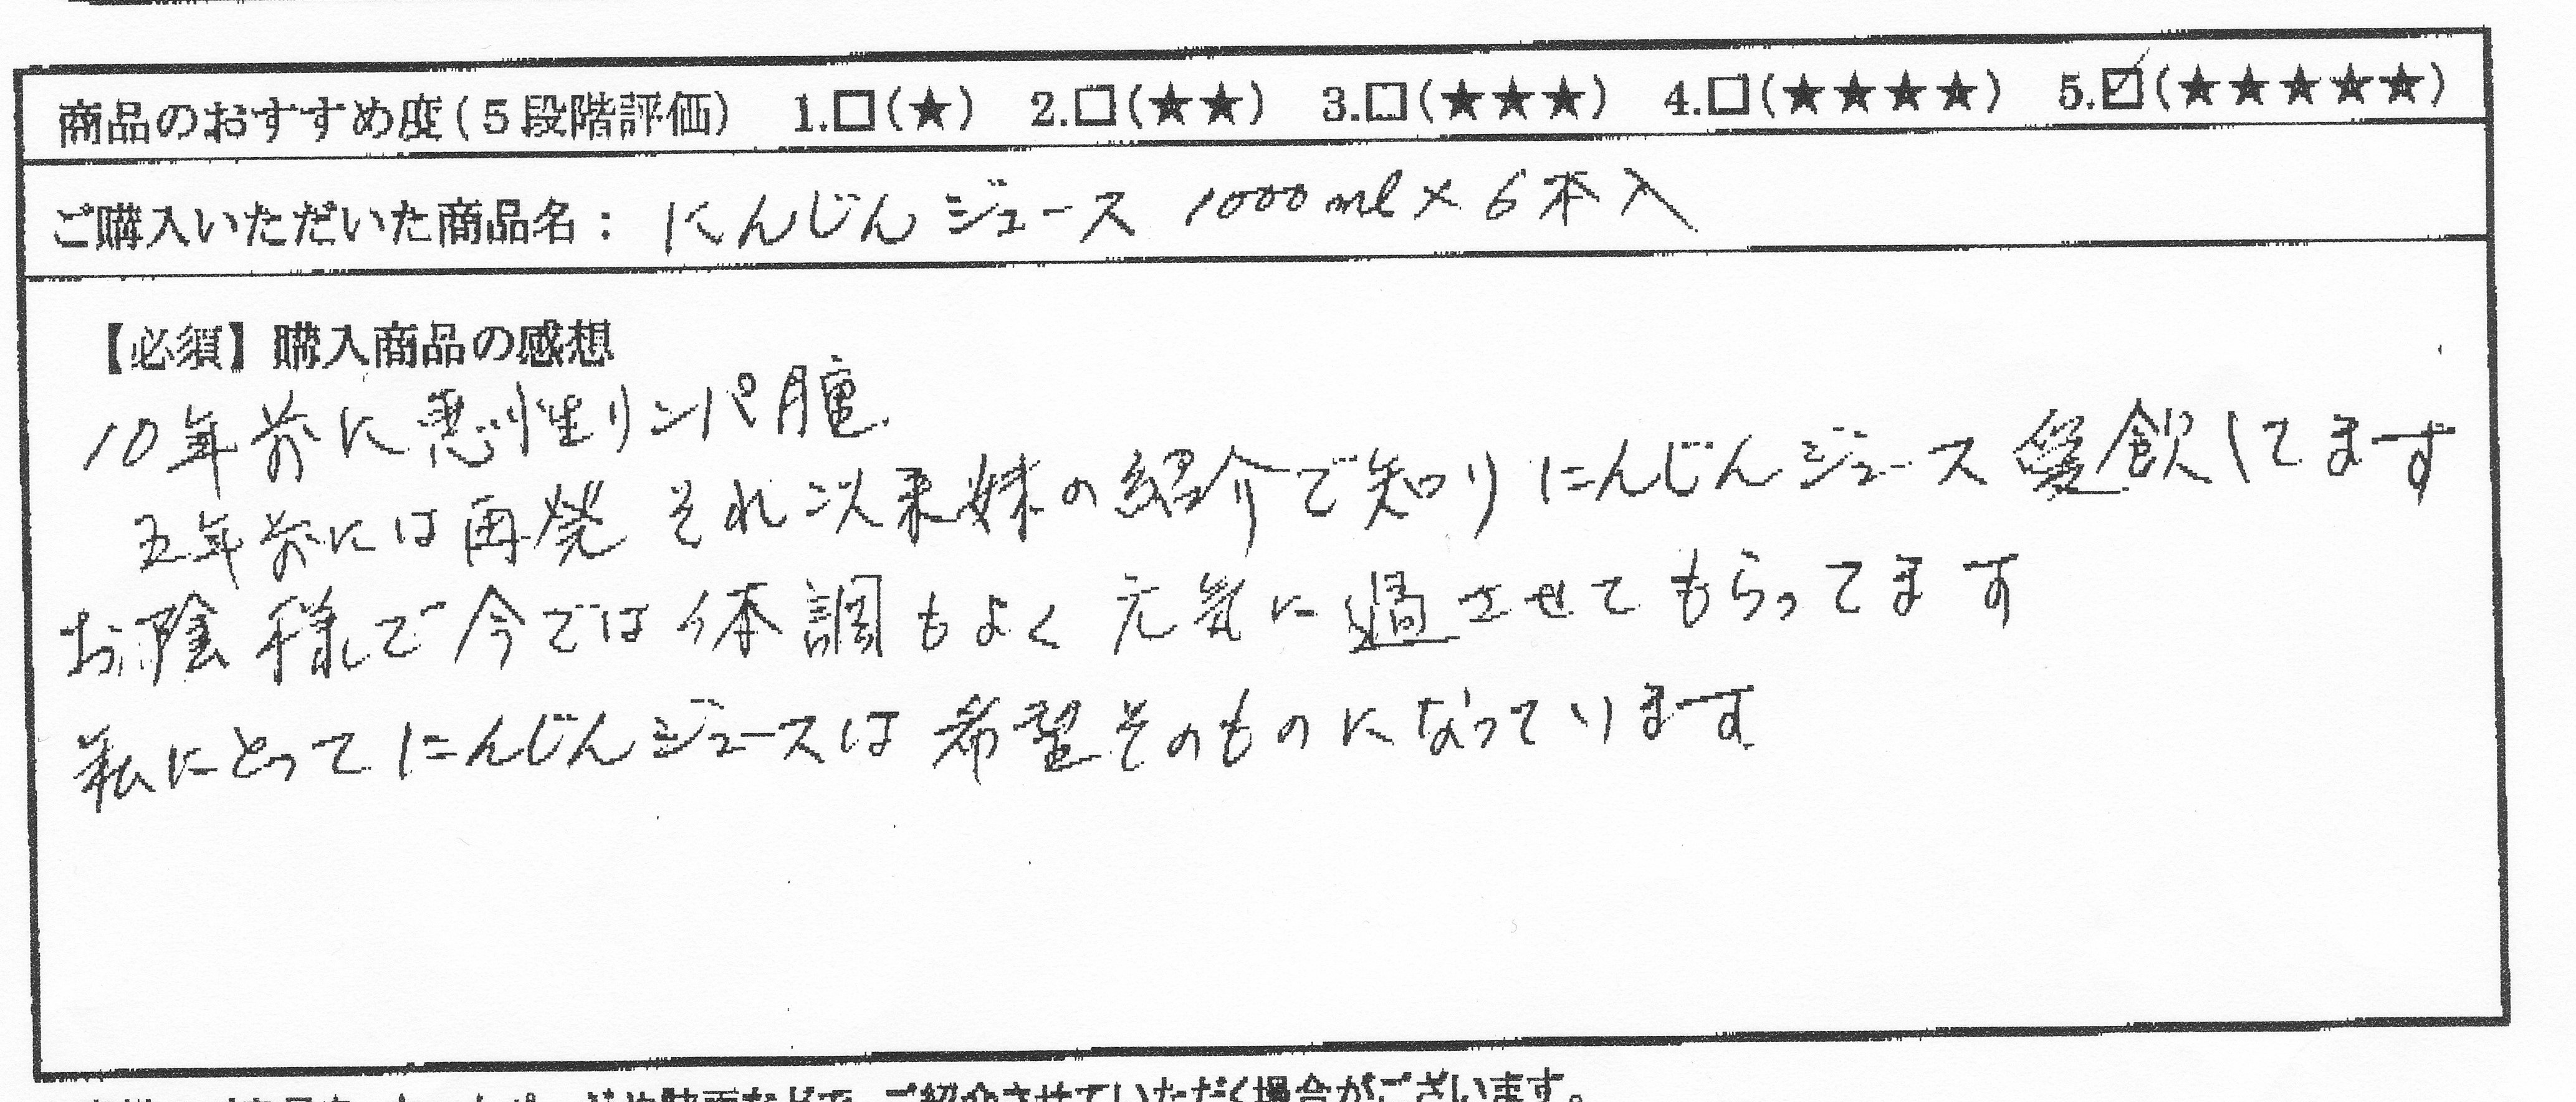 商品のおすすめ度(5段階評価) 1.□(★) 2.□(★★) 3.□(★★★) 4.□(★★★★) 5.☑(★★★★★)
ご購入いただいた商品名: にんじんジュース 1000ml×6本入
【必須】購入商品の感想
10年前に悪性リンパ腫
五年前には再焼 それ以来妹の紹介で知り にんじんジュース 愛飲してます
お陰様で今では体調もよく 元気に過させてもらってます
私にとってにんじんジュースは希望そのものになっています
ご紹介させていただく場合がございます。